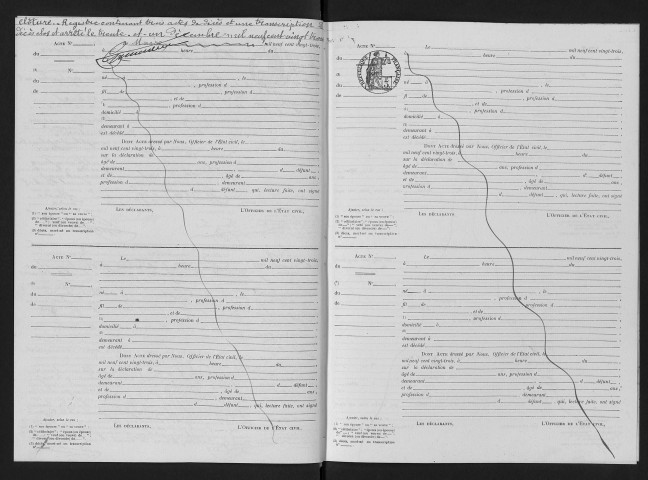 Clôture. Registre contenant trois actes de décès et une transcription de
décès clos et arrêté le trente et un Décembre mil neuf cent vingt trois
Maire
ACTE N°
Le mil neuf cent vingt-trois,
du à heure du
N°
né à
du , profession d
du fil de
, et de
, profession d
domicilié à
demeurant à
est décédé
DONT ACTE dressé par Nous, Officier de l'État civil, le
mil neuf cent vingt-trois, à heure du
sur la déclaration de
âgé de ans, profession d
demeurant d défunt
et de âgé de ans
profession d demeurant
d défunt qui, lecture faite, ont signé
LES DÉCLARANTS, L'OFFICIER DE L'ÉTAT CIVIL,
ACTE N°
Le mil neuf cent vingt-trois,
du à heure du
N°
né à
du , profession d
du fil de
et de
, profession d
domicilié à
demeurant à
est décédé
DONT ACTE dressé par Nous, Officier de l'État civil, le
mil neuf cent vingt-trois, à heure du
sur la déclaration de
âgé de ans, profession d
demeurant d défunt
et de âgé de ans
profession d demeurant
d défunt qui, lecture faite, ont signé
LES DÉCLARANTS, L'OFFICIER DE L'ÉTAT CIVIL,
RÉPUBLIQUE FRANÇAISE
Le mil neuf cent vingt-trois,
à heure du
né à
, profession d
fil de
et de
profession d
domicilié à
demeurant à
est décédé
DONT ACTE dressé par Nous, Officier de l'État civil, le
mil neuf cent vingt-trois, à heure du
sur la déclaration de
âgé de ans, profession d
demeurant d défunt
et de âgé de ans
profession d demeurant
d défunt qui, lecture faite, ont signé
LES DÉCLARANTS, L'OFFICIER DE L'ÉTAT CIVIL,
ACTE N°
Le mil neuf cent vingt-trois,
du à heure du
N°
né à
du , profession d
du fil de
et de
profession d
domicilié à
demeurant à
est décédé
DONT ACTE dressé par Nous, Officier de l'État civil, le
mil neuf cent vingt-trois, à heure du
sur la déclaration de
âgé de ans, profession d
demeurant d défunt
et de âgé de ans
profession d demeurant
d défunt qui, lecture faite, ont signé
LES DÉCLARANTS, L'OFFICIER DE L'ÉTAT CIVIL,